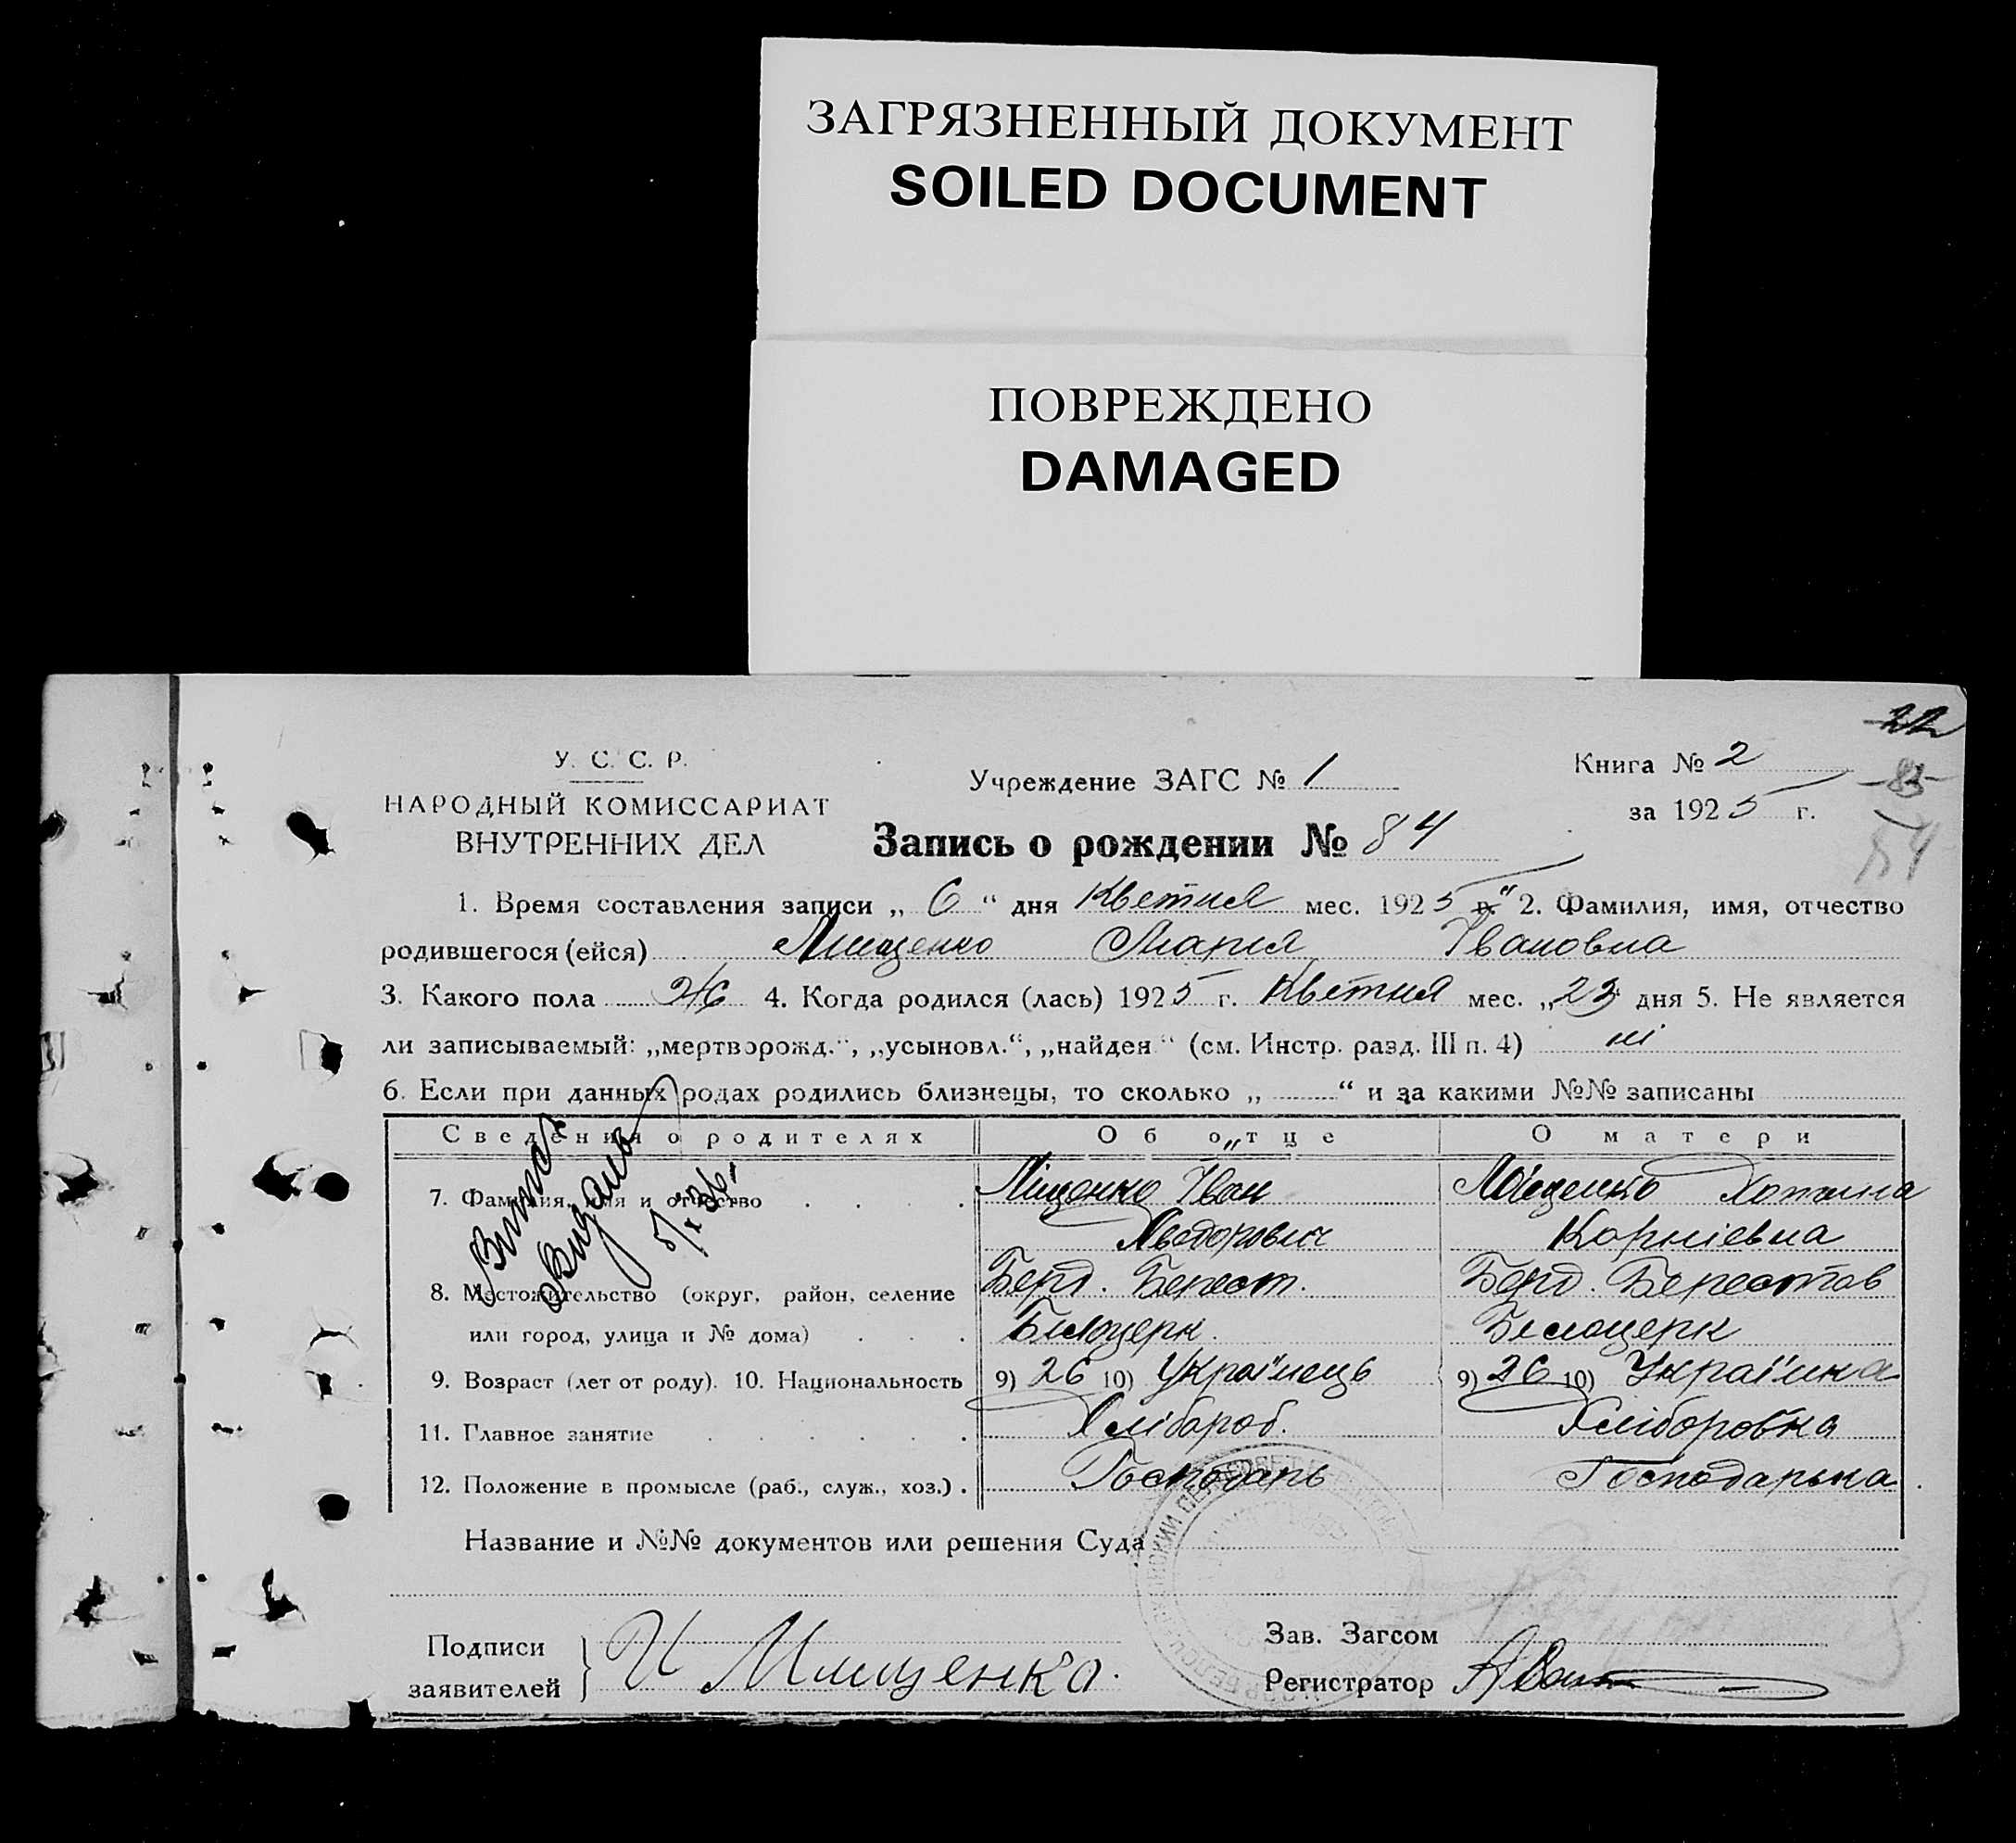 ЗАГРЯЗНЕННЫЙ ДОКУМЕНТ
SOILED DOCUMENT
ПОВРЕЖДЕНО
DAMAGED
22
83
У. С. С. Р.
НАРОДНЫЙ КОМИССАРИАТ
ВНУТРЕННИХ ДЕЛ
Учреждение ЗАГС № 1
Книга № 2
за 1925 г.
Запись о рождении № 84
1. Время составления записи „ 6 “ дня Квітня мес. 1925 г. 2. Фамилия, имя, отчество
родившегося (ейся) Мищенко Мария Івановна
3. Какого пола Ж 4. Когда родился (лась) 1925 г. Квітня мес. „23 дня 5. Не является
ли записываемый: „мертворожд.“, „усыновл.“, „найден“ (см. Инстр. разд. III п. 4) ні
6. Если при данных родах родились близнецы, то сколько „ “ и за какими №№ записаны
Сведения о родителях Об отце О матери
7. Фамилия, имя и отчество Міщенко Іван Міщенко Хотина
Хведорович Корніевна
8. Местожительство (округ, район, селение Берд. Берест. Берд. Берестов
или город, улица и № дома) Билоцерк. Білоцерк
9. Возраст (лет от роду). 10. Национальность 9) 26 10) Україńець 9) 26 10) Українка
11. Главное занятие Хлібороб. Хліборобка
12. Положение в промысле (раб., служ., хоз.) Господарь Господарька
Название и №№ документов или решения Суда
Подписи
заявителей
И Мищенко.
Зав. Загсом
Регистратор